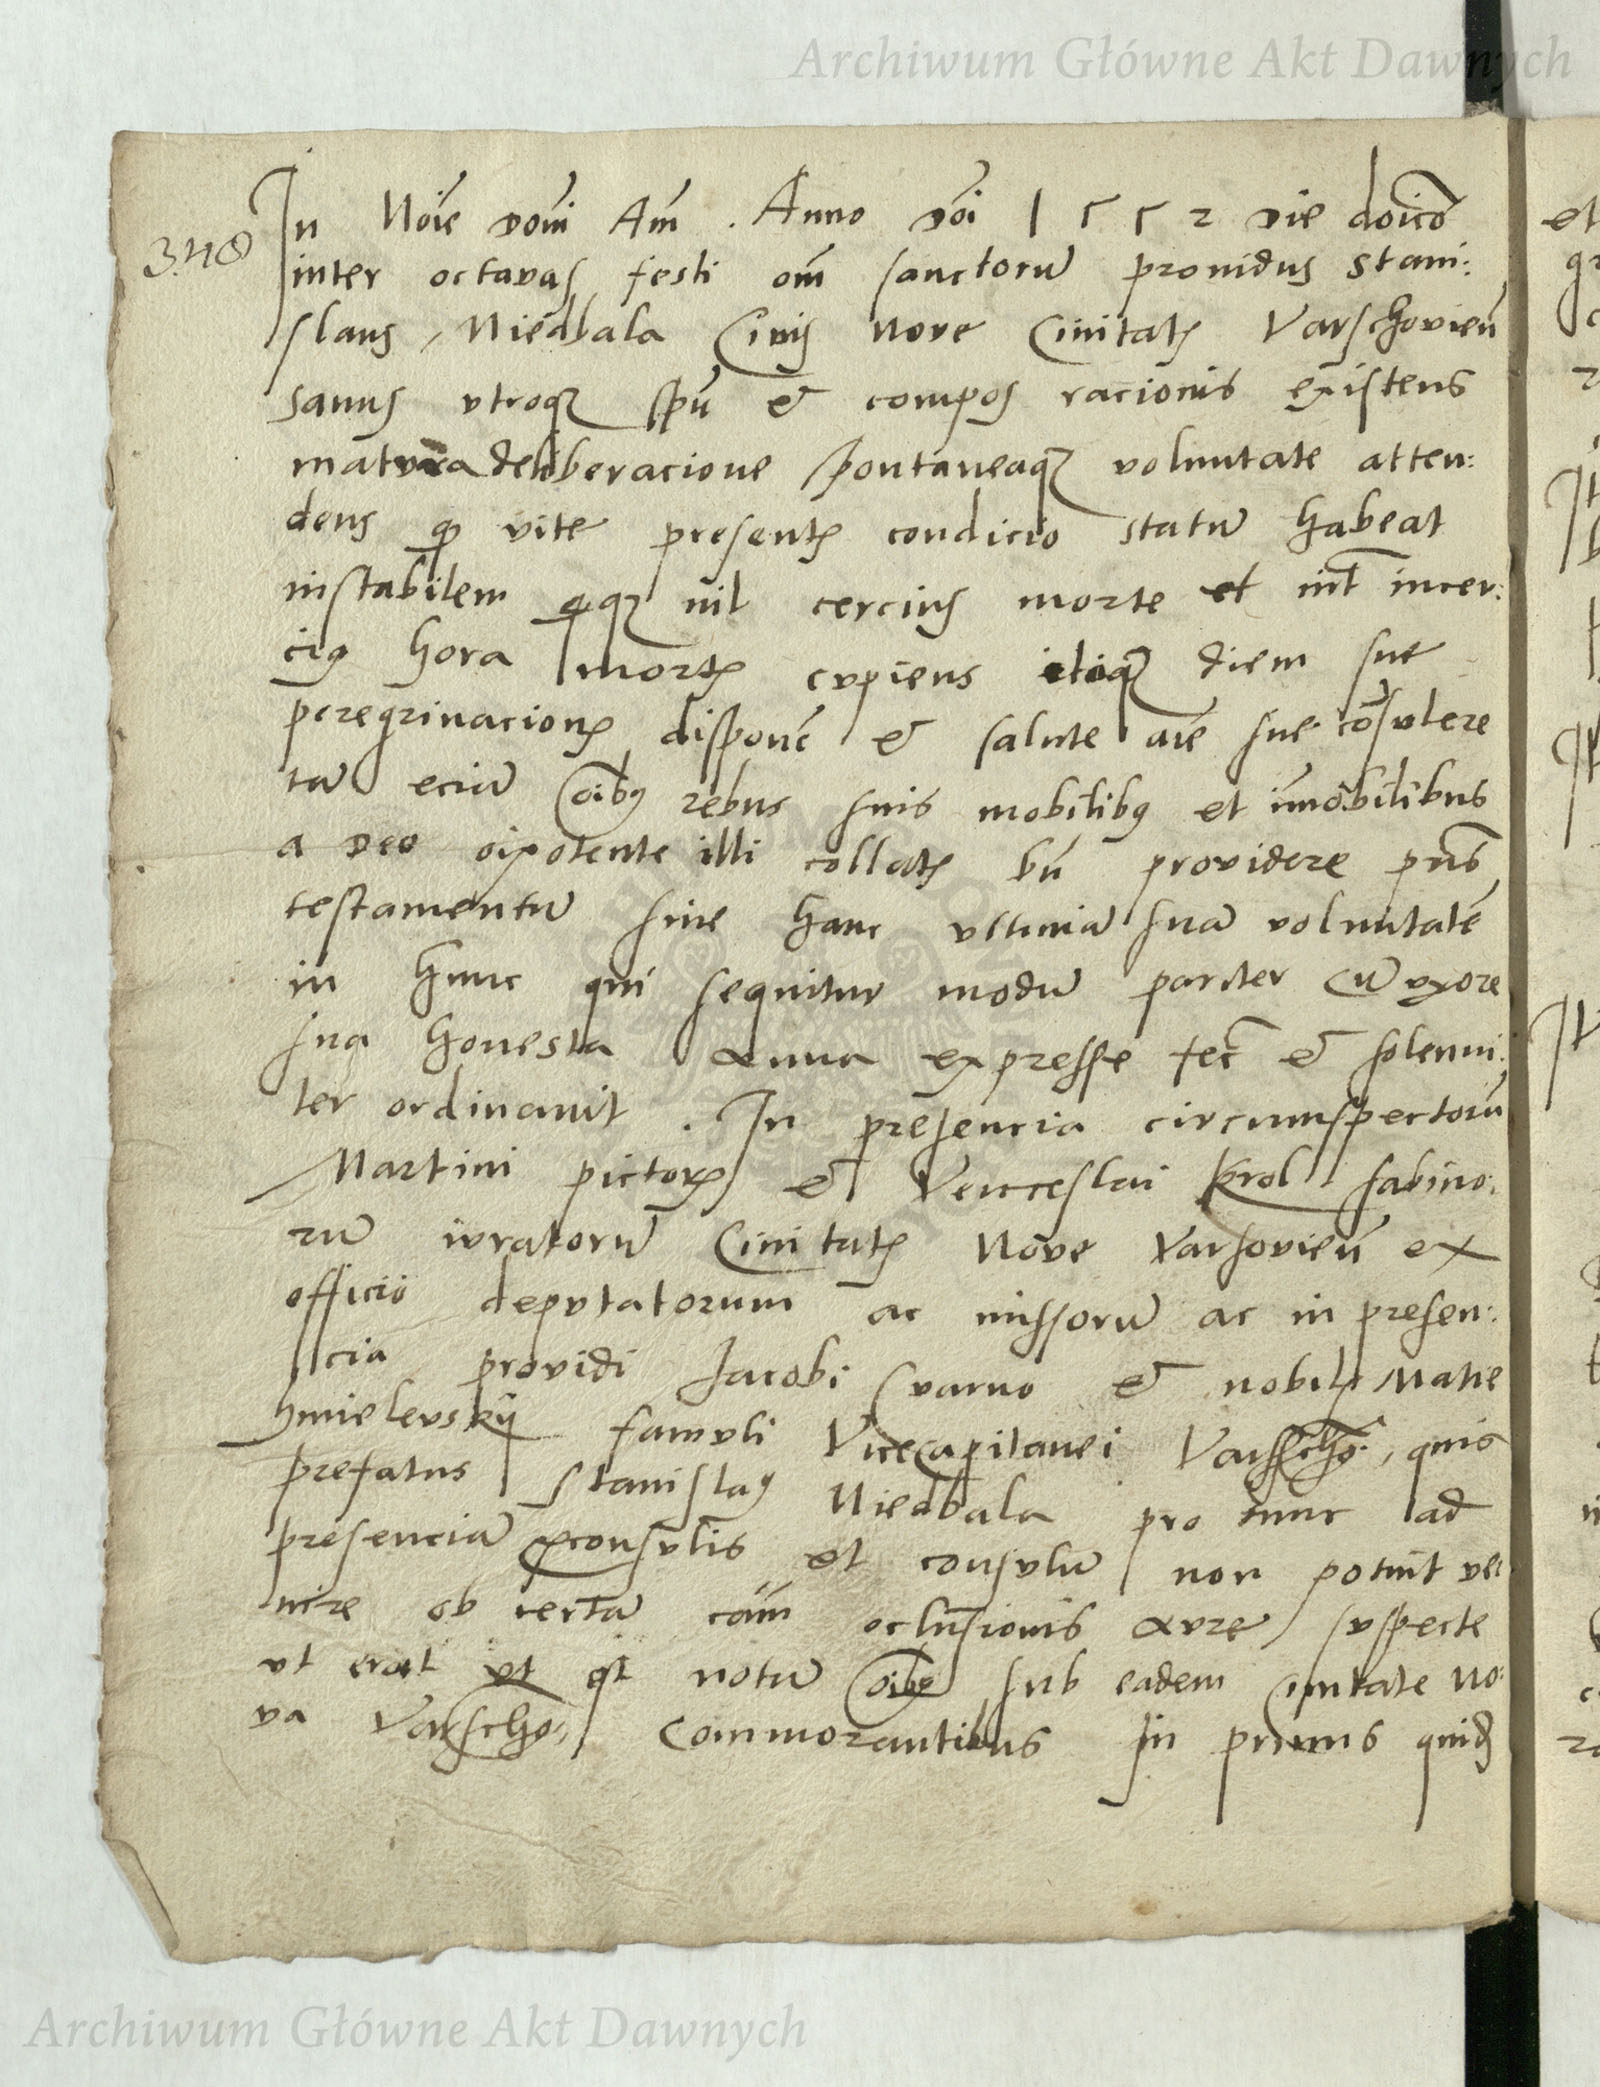 Archiwum Główne Akt Dawnych
348
In Noīe domī Am̄. Anno dōi 1552 die doīco
inter octavas festi om̄ sanctorū providus Stani:
slaus Niedbala Civis Nove Civitatꝭ Varschovien̄
sanus utroqꝫ spū & compos racionis existens
matura deliberacione spontaneaqꝫ voluntate atten:
dens ꝙ vite presentꝭ condicio statū habeat
instabilem ꝙqꝫ nil cercius morte et nīl incer:
ciꝯ hora mortꝭ cupiens itaqꝫ diem sue
peregrinacionꝭ disponē & salute aīe sue cōsulere
tā eciā oībꝯ rebus suis mobilibꝯ et īmobilibus
a deo oīpotente illi collatꝭ bn̄ providere pn̄s
testamentū sive hanc ultimā suā voluntatē
in hunc qui sequitur modū pariter cū uxore
sua honesta Anna expresse fec̄ & solenni:
ter ordinavit. In presencia circumspectorū
Martini pictorꝭ & Venceslai Krol sabino:
rū iuratorū Civitatꝭ Nove Varsovien̄ ex
officio deputatorum ac missorū ac in presen:
cia providi Jacobi Svarno & nobilꝭ Matie
Hmielevskij famuli Vicecapitanei Varsscho: quia
prefatus Stanislaꝯ Niedbala pro tunc ad
presenciā ꝓconsulis et consulū non potuit ve:
nire ob certā cām oclusionis aure suspecte
ut erat et est notū oībꝯ sub eadem civitate No:
va Varscho: commorantibus In primis quidꝫ
Archiwum Główne Akt Dawnych